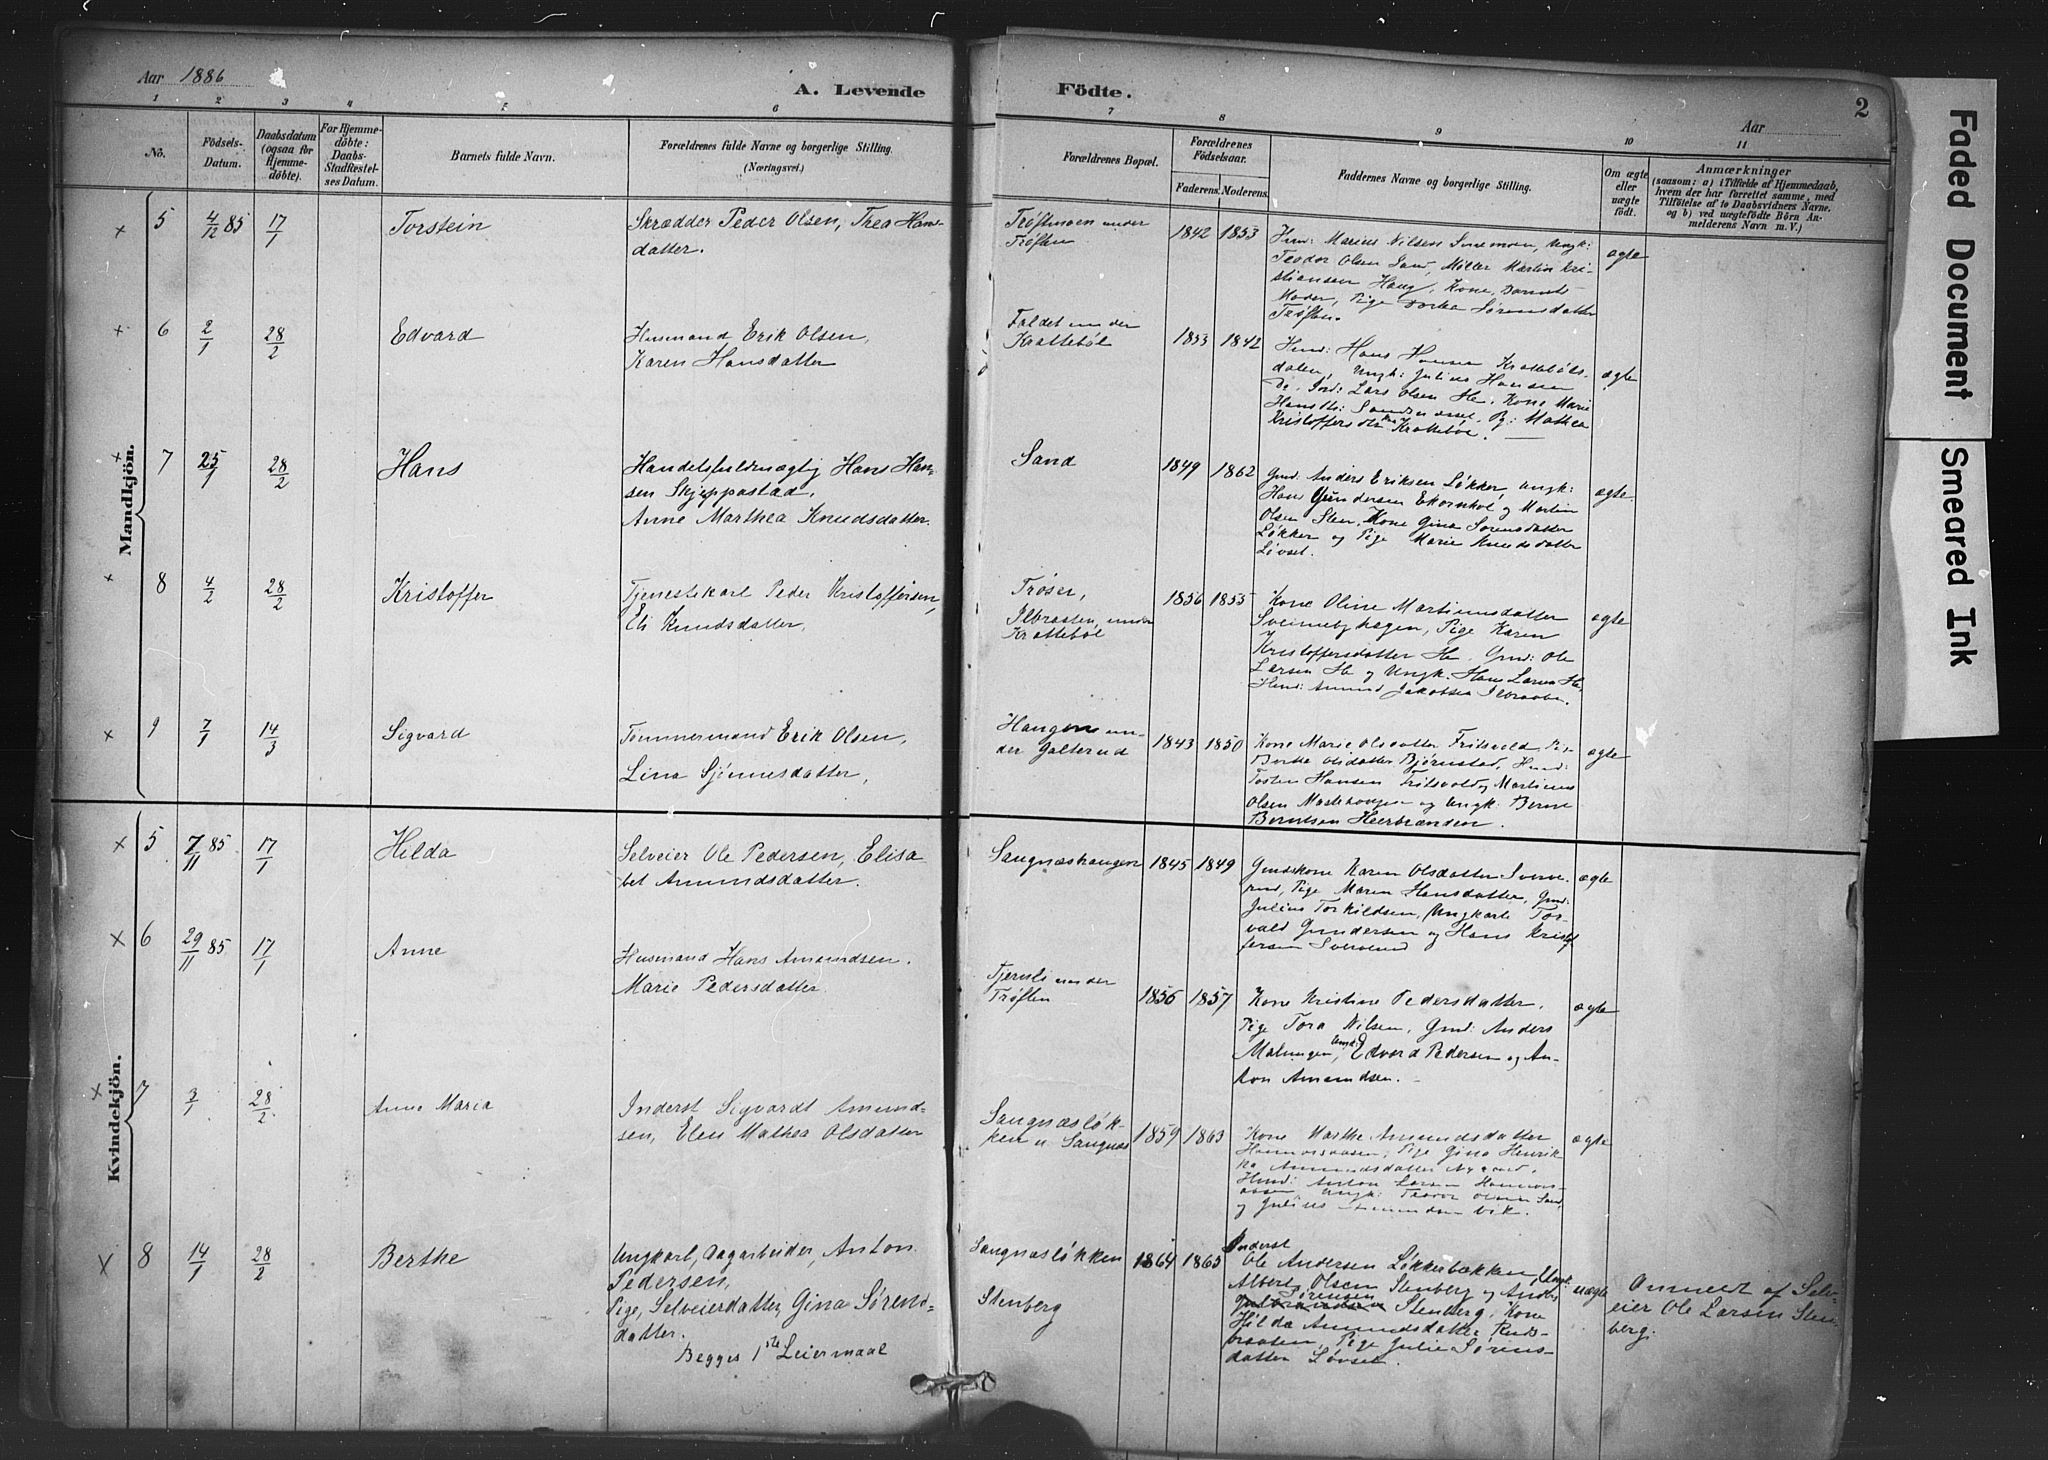 Aar 1886
A. Levende
Födte.
Aar
2
1 2 3 4 5 6 7 8 9 10 11
No.
Födsels-
Datum.
Daabsdatum
(ogsaa for
Hjemme-
döbte).
For Hjemme-
döbte:
Daabs-
Stadfæstel-
ses Datum.
Barnets fulde Navn.
Forældrenes fulde Navne og borgerlige Stilling.
(Næringsvei.)
Forældrenes Bopæl.
Forældrenes
Födselsaar.
Faderens. Moderens.
Faddernes Navne og borgerlige Stilling.
Om ægte
eller
uægte
født.
Anmærkninger
(saasom: a) i Tilfælde af Hjemmedaab,
hvem der har forrettet samme, med
Tilföielse af to Daabsvidners Navne.
og b) ved uægtefödte Börn An-
melderens Navn m. V.)
Mandkjön.
× 5 4/12 85 17/1 Torstein
Skrædder Peder Olsen, Thea Hans-
datter.
Trøftmoen under
Trøften
1842 1853
Hmd: Marius Nilsen Ungk:
Teodor Olsen Sand, Møller Martin Kri-
stiansen Haug, Kone, Barnets
Moder, Pige Dorthea Sørensdatter
Trøften.
ægte
× 6 2/1 28/2 Edvard
Husmand Erik Olsen,
Karen Hansdatter
Faldet under
Krattebøl
1853 1842
Hmd: Hans Hansen Krattebøls-
dalen, Ungk: Julius Hansen
Do. Lars Olsen Kone Marie
Hansdtr: Pg: Mathea
Kristoffersdtr Krattebøl.
ægte
× 7 25/1 28/2 Hans
Handelsfuldmægtig Hans Han-
sen Skjeppestad,
Anne Marthea Knudsdatter.
Sand
1849 1862
Gmd: Anders Eriksen Løkker, Ungk:
Hans Gundersen Ekornhol og Martin
Olsen Sten, Kone Gina Sørensdatter
Løkker og Pige Marie Knudsdatter
Løvset.
ægte
× 8 4/2 28/2 Kristoffer
Tjenestekarl Peder Kristoffersen,
Eli Knudsdatter,
Trøser,
Ilbraaten, under
Krattebøl
1856 1855
Kone Oline Martinusdatter
Sveinebyhagen, Pige Karen
Kristoffersdatter Gmd: Ole
Larsen og Ungk. Hans Larsen
Hmd: Amund Jakobsen Ilbraaten.
ægte
× 9 7/1 14/3 Sigvard
Tømmermand Erik Olsen,
Lina Sjønnesdatter,
Haugen un-
der Galterud
1843 1850
Kone Marie Olsdatter Fritsvold,
Berthe Olsdatter Bjørnstad, Hmd:
Tosten Hansen Fritsvold, Martinus
Olsen og Ungk: Bernt
Berntsen Heerbrænden.
ægte
Kvindekjön.
× 5 7/11 85 17/1 Hilda
Selveier Ole Pedersen, Elisa-
bet Amundsdatter.
Sangnæshaugen
1845 1849
Gmdskone Karen Olsdatter Sverve-
rud, Pige Maren Hansdatter, Gmd:
Julius Torkildsen, Ungkarle Tor-
vald Gundersen og Hans Kristof-
fersen Sververud
ægte
× 6 29/11 85 17/1 Anne
Husmand Hans Amundsen.
Marie Pedersdatter.
Tjernli under
Trøften
1856 1857
Kone Kristine Pedersdatter.
Pige Tora Nilsen, Gmd: Anders
Malungen, Edvard Pedersen og An-
ton Amundsen.
ægte
× 7 3/1 28/2 Anne Maria
Inderst Sigvardt Amund-
sen, Elen Mathea Olsdatter
Sangnæsløk-
ken u. Sangnæs
1859 1863
Kone Marthe Amundsdatter
Pige Gina Henrik-
ke Amundsdatter
Hmd: Anton Larsen
Ungk: Teodor Olsen Sand,
og Julius Amundsen Vik.
ægte
× 8 14/1 28/2 Berthe
Ungkarl, Dagarbeider, Anton
Pedersen,
Pige, Selveierdatter, Gina Sørens-
datter.
Begges 1ste Leiermaal
Sangnæsløkken
Stenberg
1864 1865
Inderst
Ole Andersen Løkkebækken, Ungk:
Albert Olsen Stenberg og
Sørensen
Stenberg, Kone
Hilda Amundsdatter Ruds-
braaten, Pige Julie Sørens-
datter Løvset.
uægte
Anmeldt af Selv-
eier Ole Larsen Sten-
berg.
Faded Document
Smeared Ink